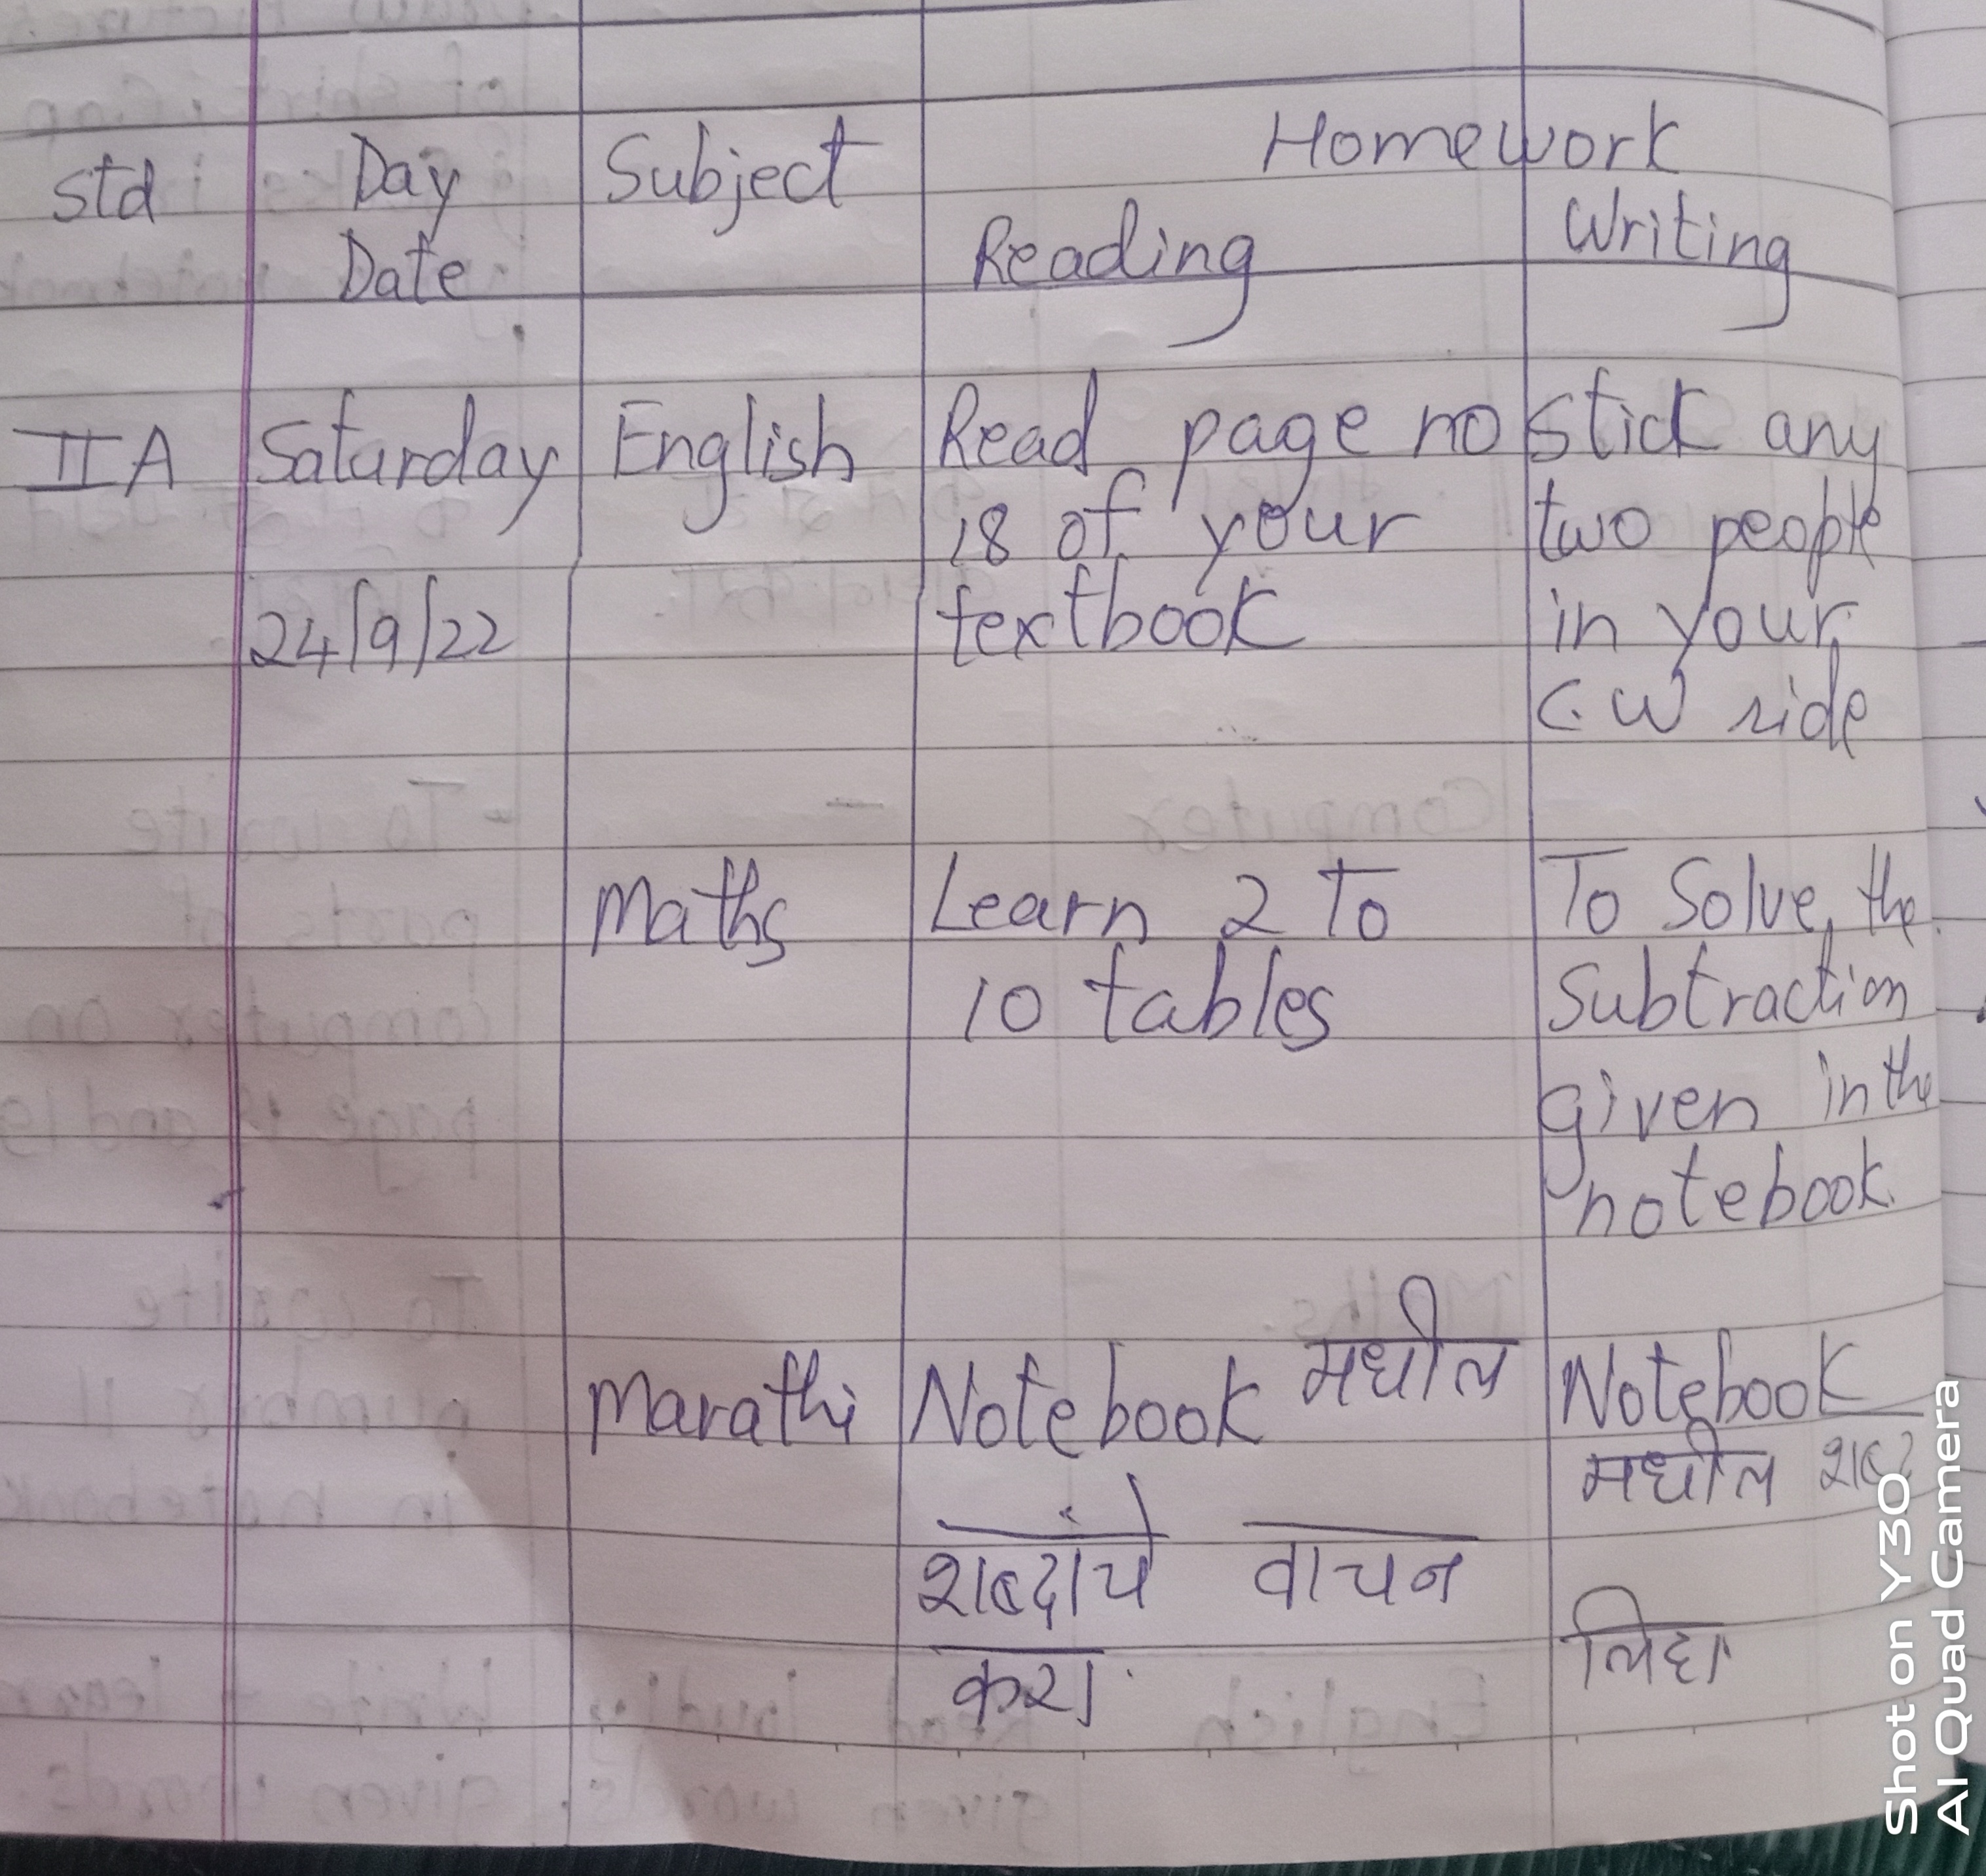 Homework
Std Day Subject
Date Reading Writing
II A Saturday English Read page no stick any
18 of your two people
24/9/22 textbook in your
C.W side
Maths Learn 2 To To Solve, the
10 tables Subtraction
given in the
notebook.
Marathi Notebook मधील Notebook
मधील शब्द
शब्दांचे वाचन
करा. लिहा
Shot on Y30
AI Quad Camera